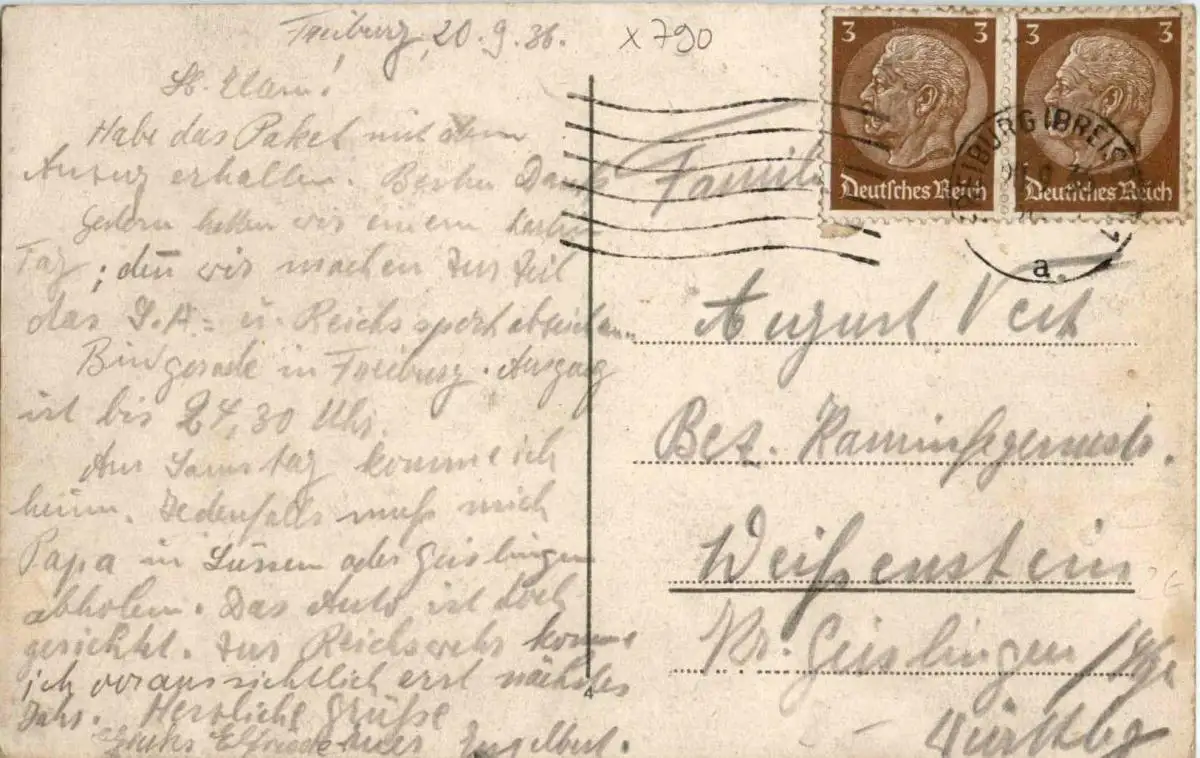 Freiburg, 20.9.36.
x 790
Lb. Eltern!
Habe das Paket mit dem
Anzug erhalten. Besten Dank
Gestern hatten wir einen
Tag; den wir machen zur Zeit
das S.A.= u. Reichssportabzeichen.
Bin gerade in Freiburg. Ausgang
ist bis 24,30 Uhr.
Am Samstag komme ich
heim. Jedenfalls muß mich
Papa in Süssen oder Geislingen
abholen. Das Auto ist doch
gerichtet. Zur Reichswehr komme
ich voraussichtlich erst nächstes
Jahr. Herzliche Grüße
Elfriede Engelbert.
3 3
Deutsches Reich
3 3
Deutsches Reich
FREIBURG (BREISGAU) 1
a
Familie
August Veit
Bez. Kaminfegermstr.
Weißenstein
Kr. Geislingen / Stge
Württbg
4